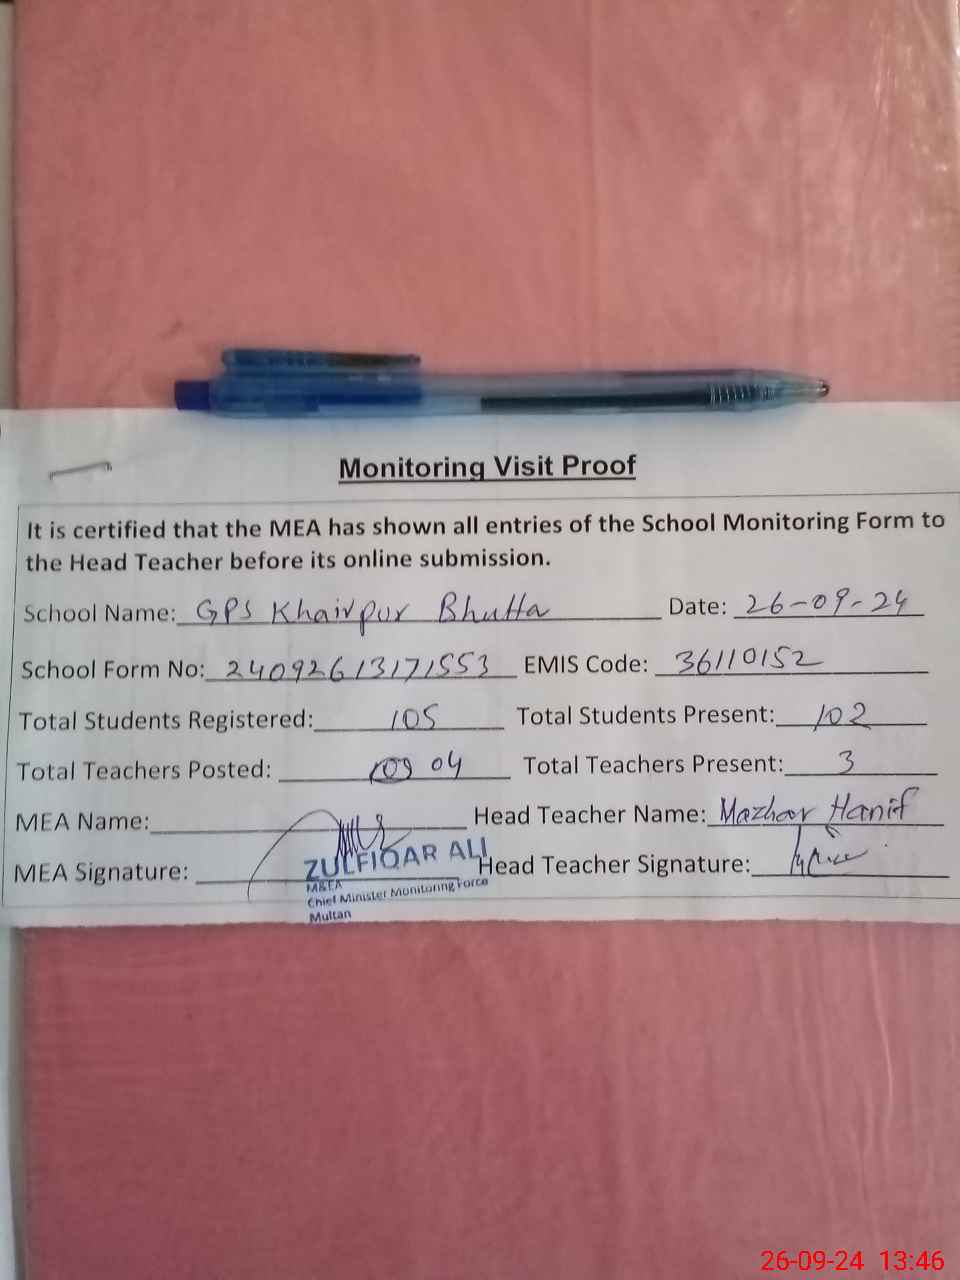 Monitoring Visit Proof
It is certified that the MEA has shown all entries of the School Monitoring Form to
the Head Teacher before its online submission.
School Name: GPS Khairpur Bhutta Date: 26-09-24
School Form No: 24092613171553 EMIS Code: 36110152
Total Students Registered: 105 Total Students Present: 102
Total Teachers Posted: 04 Total Teachers Present: 3
MEA Name: Head Teacher Name: Mazhar Hanif
MEA Signature: ZULFIQAR ALI Head Teacher Signature:
M&EA
Chief Minister Monitoring Force
Multan
26-09-24 13:46